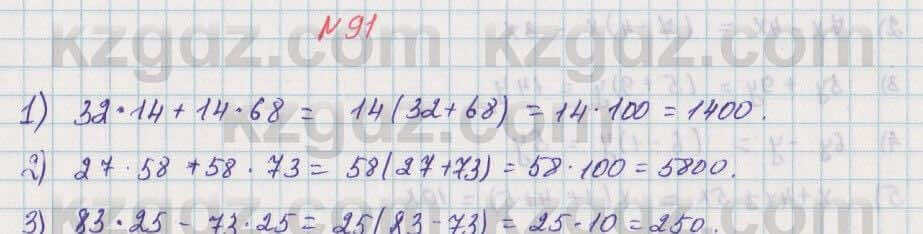 kzgdz.com
№91
1) 32·14 + 14·68 = 14(32+68) = 14·100 = 1400.
2) 27·58 + 58·73 = 58(27+73) = 58·100 = 5800.
3) 83·25 - 73·25 = 25(83-73) = 25·10 = 250.